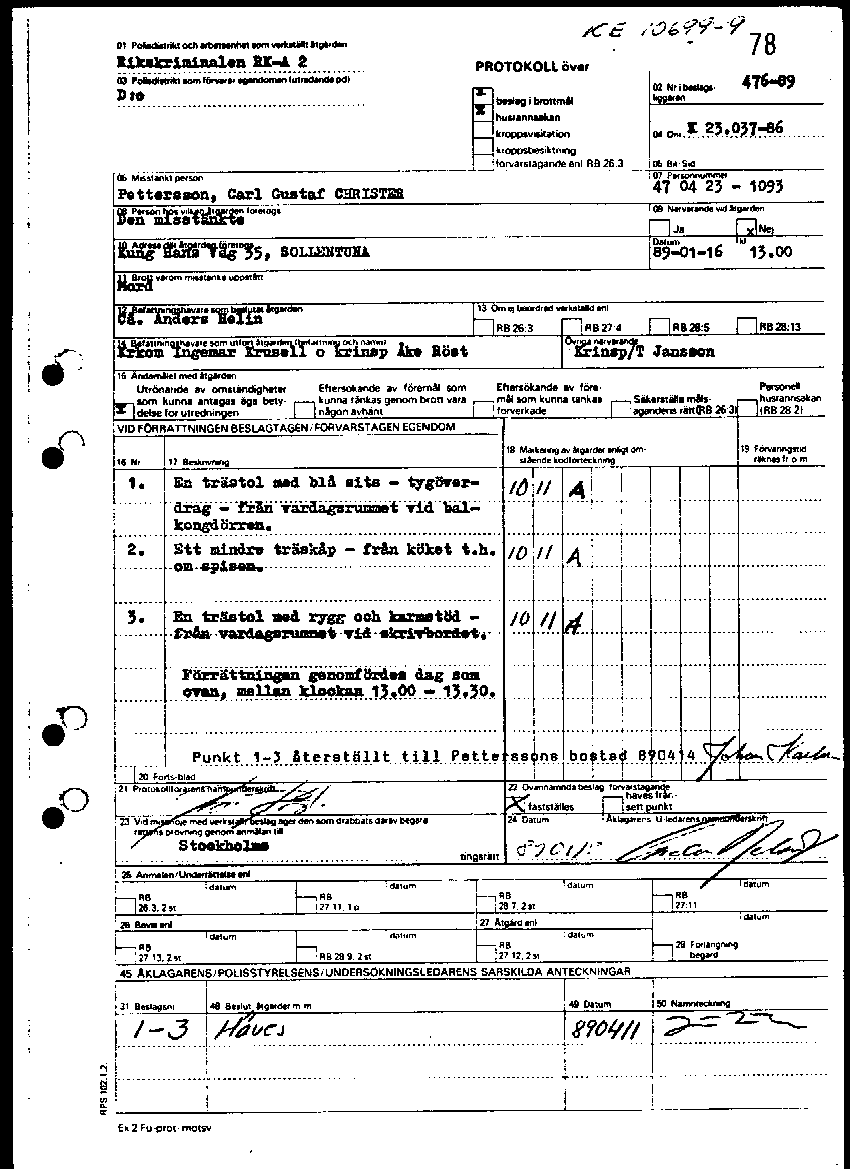 KE 10699-9
78
01 Polisdistrikt och arbetsenhet som verkställt åtgärden
Rikskriminalen RK-A 2
03 Polisdistrikt som förvarar egendomen (utredande pd)
D:o
PROTOKOLL över
beslag i brottmål
husrannsakan
kroppsvisitation
kroppsbesiktning
förvarstagande enl RB 26.3
02 Nr i beslags-
liggaren
476-89
04 Dnr
K 23.037-86
05 Bil Sid
06 Misstänkt person
Pettersson, Carl Gustaf CHRISTER
07 Personnummer
47 04 23 - 1093
08 Person hos vilken åtgärden företogs
Den misstänkte
09 Närvarande vid åtgärden
Ja
x Nej
10 Adress där åtgärden företogs
Kung Hans Väg 35, SOLLENTUNA
Datum
89-01-16
Kl
13.00
11 Brott varom misstanke uppstått
Mord
12 Befattningshavare som beslutat åtgärden
Cå. Anders Helin
13 Om ej beordrad verkställd enl
RB 26:3
RB 27:4
RB 28:5
RB 28:13
14 Befattningshavare som utfört åtgärden (befattning och namn)
Krkom Ingemar Krusell o krinsp Åke Röst
Övriga närvarande
Krinsp/T Jansson
15 Ändamålet med åtgärden
Utrönande av omständigheter
som kunna antagas äga bety-
delse för utredningen
Eftersökande av föremål som
kunna tänkas genom brott vara
någon avhänt
Eftersökande av före-
mål som kunna tänkas
förverkade
Säkerställa måls-
ägandens rätt (RB 26:3)
Personell
husrannsakan
(RB 28 2)
VID FÖRRÄTTNINGEN BESLAGTAGEN/FÖRVARSTAGEN EGENDOM
16 Nr
17 Beskrivning
18 Markering av åtgärder enligt om-
stående kodförteckning
19 Förvaringstid
räknas fr o m
1. En trästol med blå sits - tygöver- 10 11 A
drag - från vardagsrummet vid bal-
kongdörren.
2. Ett mindre träskåp - från köket t.h. 10 11 A
om spisen.
3. En trästol med rygg och karmstöd - 10 11 A
från vardagsrummet vid skrivbordet.
Förrättningen genomfördes dag som
ovan, mellan klockan 13.00 - 13.30.
Punkt 1-3 återställt till Petterssons bostad 890414
20 Forts-blad
21 Protokollförarens namnunderskrift
22 Ovannämnda beslag förvarstagande
fastställes
häves från-
sett punkt
23 Vid missnöje med verkställt beslag äger den som drabbats därav begära
rättens prövning genom anmälan till
Stockholms
tingsrätt
24 Datum
Åklagarens U-ledarens namnunderskrift
25 Anmälan/Underrättelse enl
RB
26.3, 2 st
datum
RB
27 11, 1 p
datum
RB
28 7, 2 st
datum
RB
27:11
datum
26 Bevis enl
RB
27 13, 2 st
datum
RB 28 9, 2 st
datum
27 Åtgärd enl
RB
27 12, 2 st
datum
28 Förlängning
begärd
datum
45 ÅKLAGARENS/POLISSTYRELSENS/UNDERSÖKNINGSLEDARENS SÄRSKILDA ANTECKNINGAR
31 Beslagsnr
48 Beslut, åtgärder m m
49 Datum
50 Namnteckning
1-3 Häves 890411
RPS 102.1.2.
Ex 2 Fu-prot- motsv